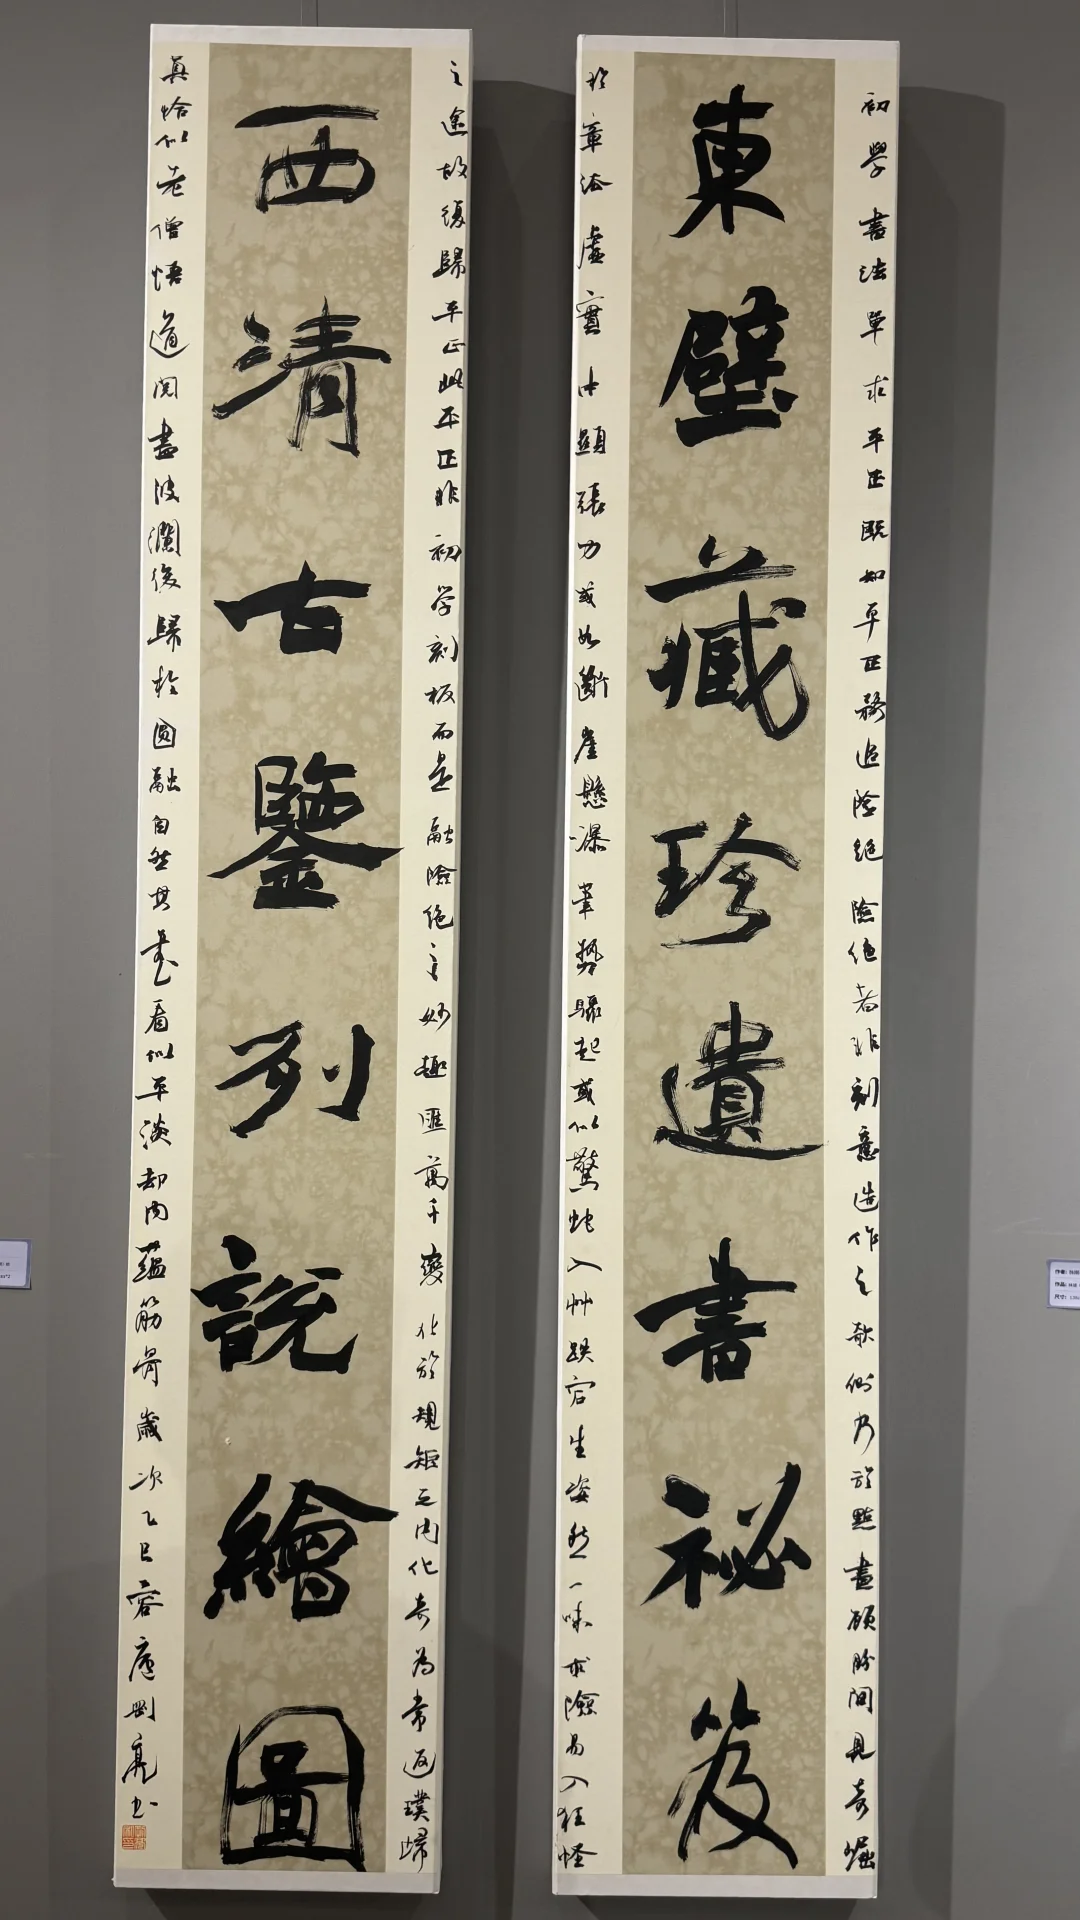 初學書法單求平正既知平正務追險絕險絕者非刻意造作之欹側乃於點畫顧盼間見奇崛
東壁藏珍遺書祕笈
於章法虛實中顯張力或如斷崖懸瀑筆勢驟起或似驚蛇入艸跌宕生姿然一味求險易入狂怪
之途故復歸平正此平正非初学刻板而是融險絕之妙趣匯萬千變化於規矩之内化奇為常返璞歸
西清古鑒列說繪圖
真恰似老僧悟道閱盡波瀾後歸於圓融自然其書看似平淡却内蘊筋骨歲次乙巳容庵剛亮书
作者:
作品:
尺寸: